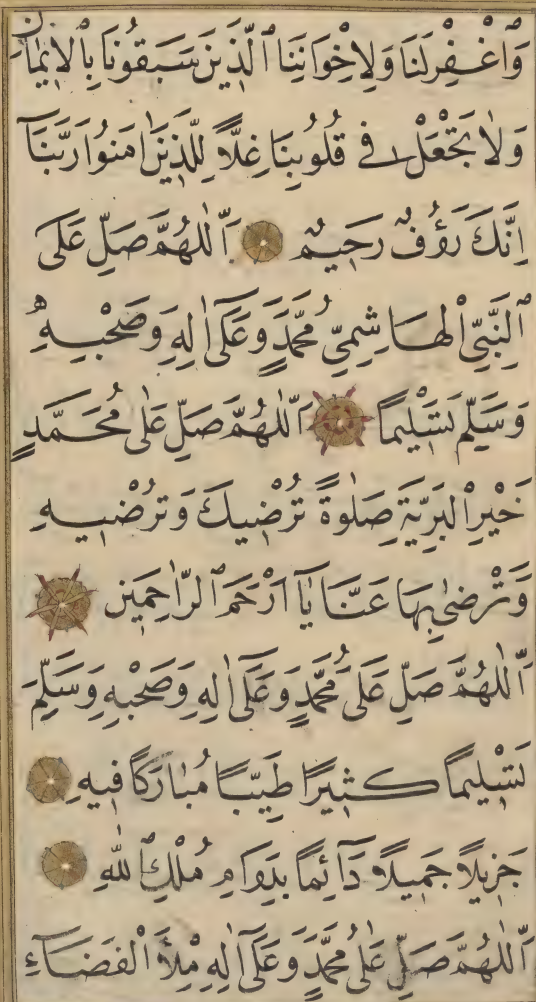 وَاغْفِرْ لَنَا وَلِاِخْوَانِنَا الَّذِينَ سَبَقُونَا بِالْاِيمَانِ
وَلَا تَجْعَلْ فِي قُلُوبِنَا غِلًّا لِلَّذِينَ اٰمَنُوا رَبَّنَا
اِنَّكَ رَؤُفٌ رَحِيمٌ اَللّٰهُمَّ صَلِّ عَلَى
النَّبِيِّ الْهَاشِمِيِّ مُحَمَّدٍ وَعَلَى اٰلِهِ وَصَحْبِهِ
وَسَلِّمْ تَسْلِيمًا اَللّٰهُمَّ صَلِّ عَلٰى مُحَمَّدٍ
خَيْرِ الْبَرِيَّةِ صَلٰوةً تُرْضِيكَ وَتُرْضِيهِ
وَتَرْضٰى بِهَا عَنَّا يَا اَرْحَمَ الرَّاحِمِينَ
اَللّٰهُمَّ صَلِّ عَلَى مُحَمَّدٍ وَعَلَى اٰلِهِ وَصَحْبِهِ وَسَلِّمْ
تَسْلِيمًا كَثِيرًا طَيِّبًا مُبَارَكًا فِيهِ
جَزِيلًا جَمِيلًا دَآئِمًا بِدَوَامِ مُلْكِ اللّٰهِ
اَللّٰهُمَّ صَلِّ عَلٰى مُحَمَّدٍ وَعَلَى اٰلِهِ مِلْأَ الْفَضَآءِ